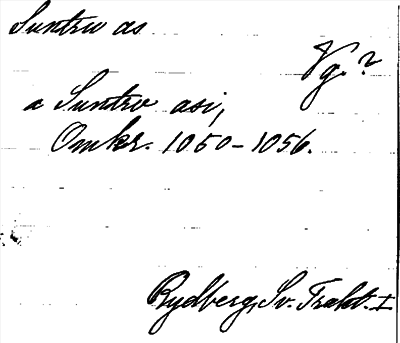 Suntru as
Vg. ?
a Suntru asi,
Omkr. 1050-1056.
Rydberg, Sv. Trakt. I